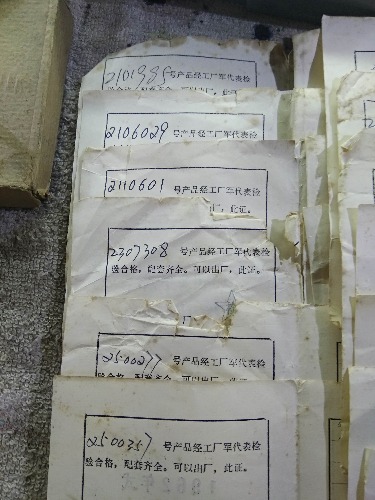 2101985号产品经工厂军代表检
验合格，配套齐全。可以出厂，此证。
2106029号产品经工厂军代表检
2110601号产品经工厂军代表检
厂，此证。
2307308号产品经工厂军代表检
验合格，配套齐全。可以出厂，此证。
厂
2500277号产品经工厂军代表检
验合格，配套齐全。可以出厂，此证。
2500357号产品经工厂军代表检
验合格，配套齐全。可以出厂，此证。
1962年